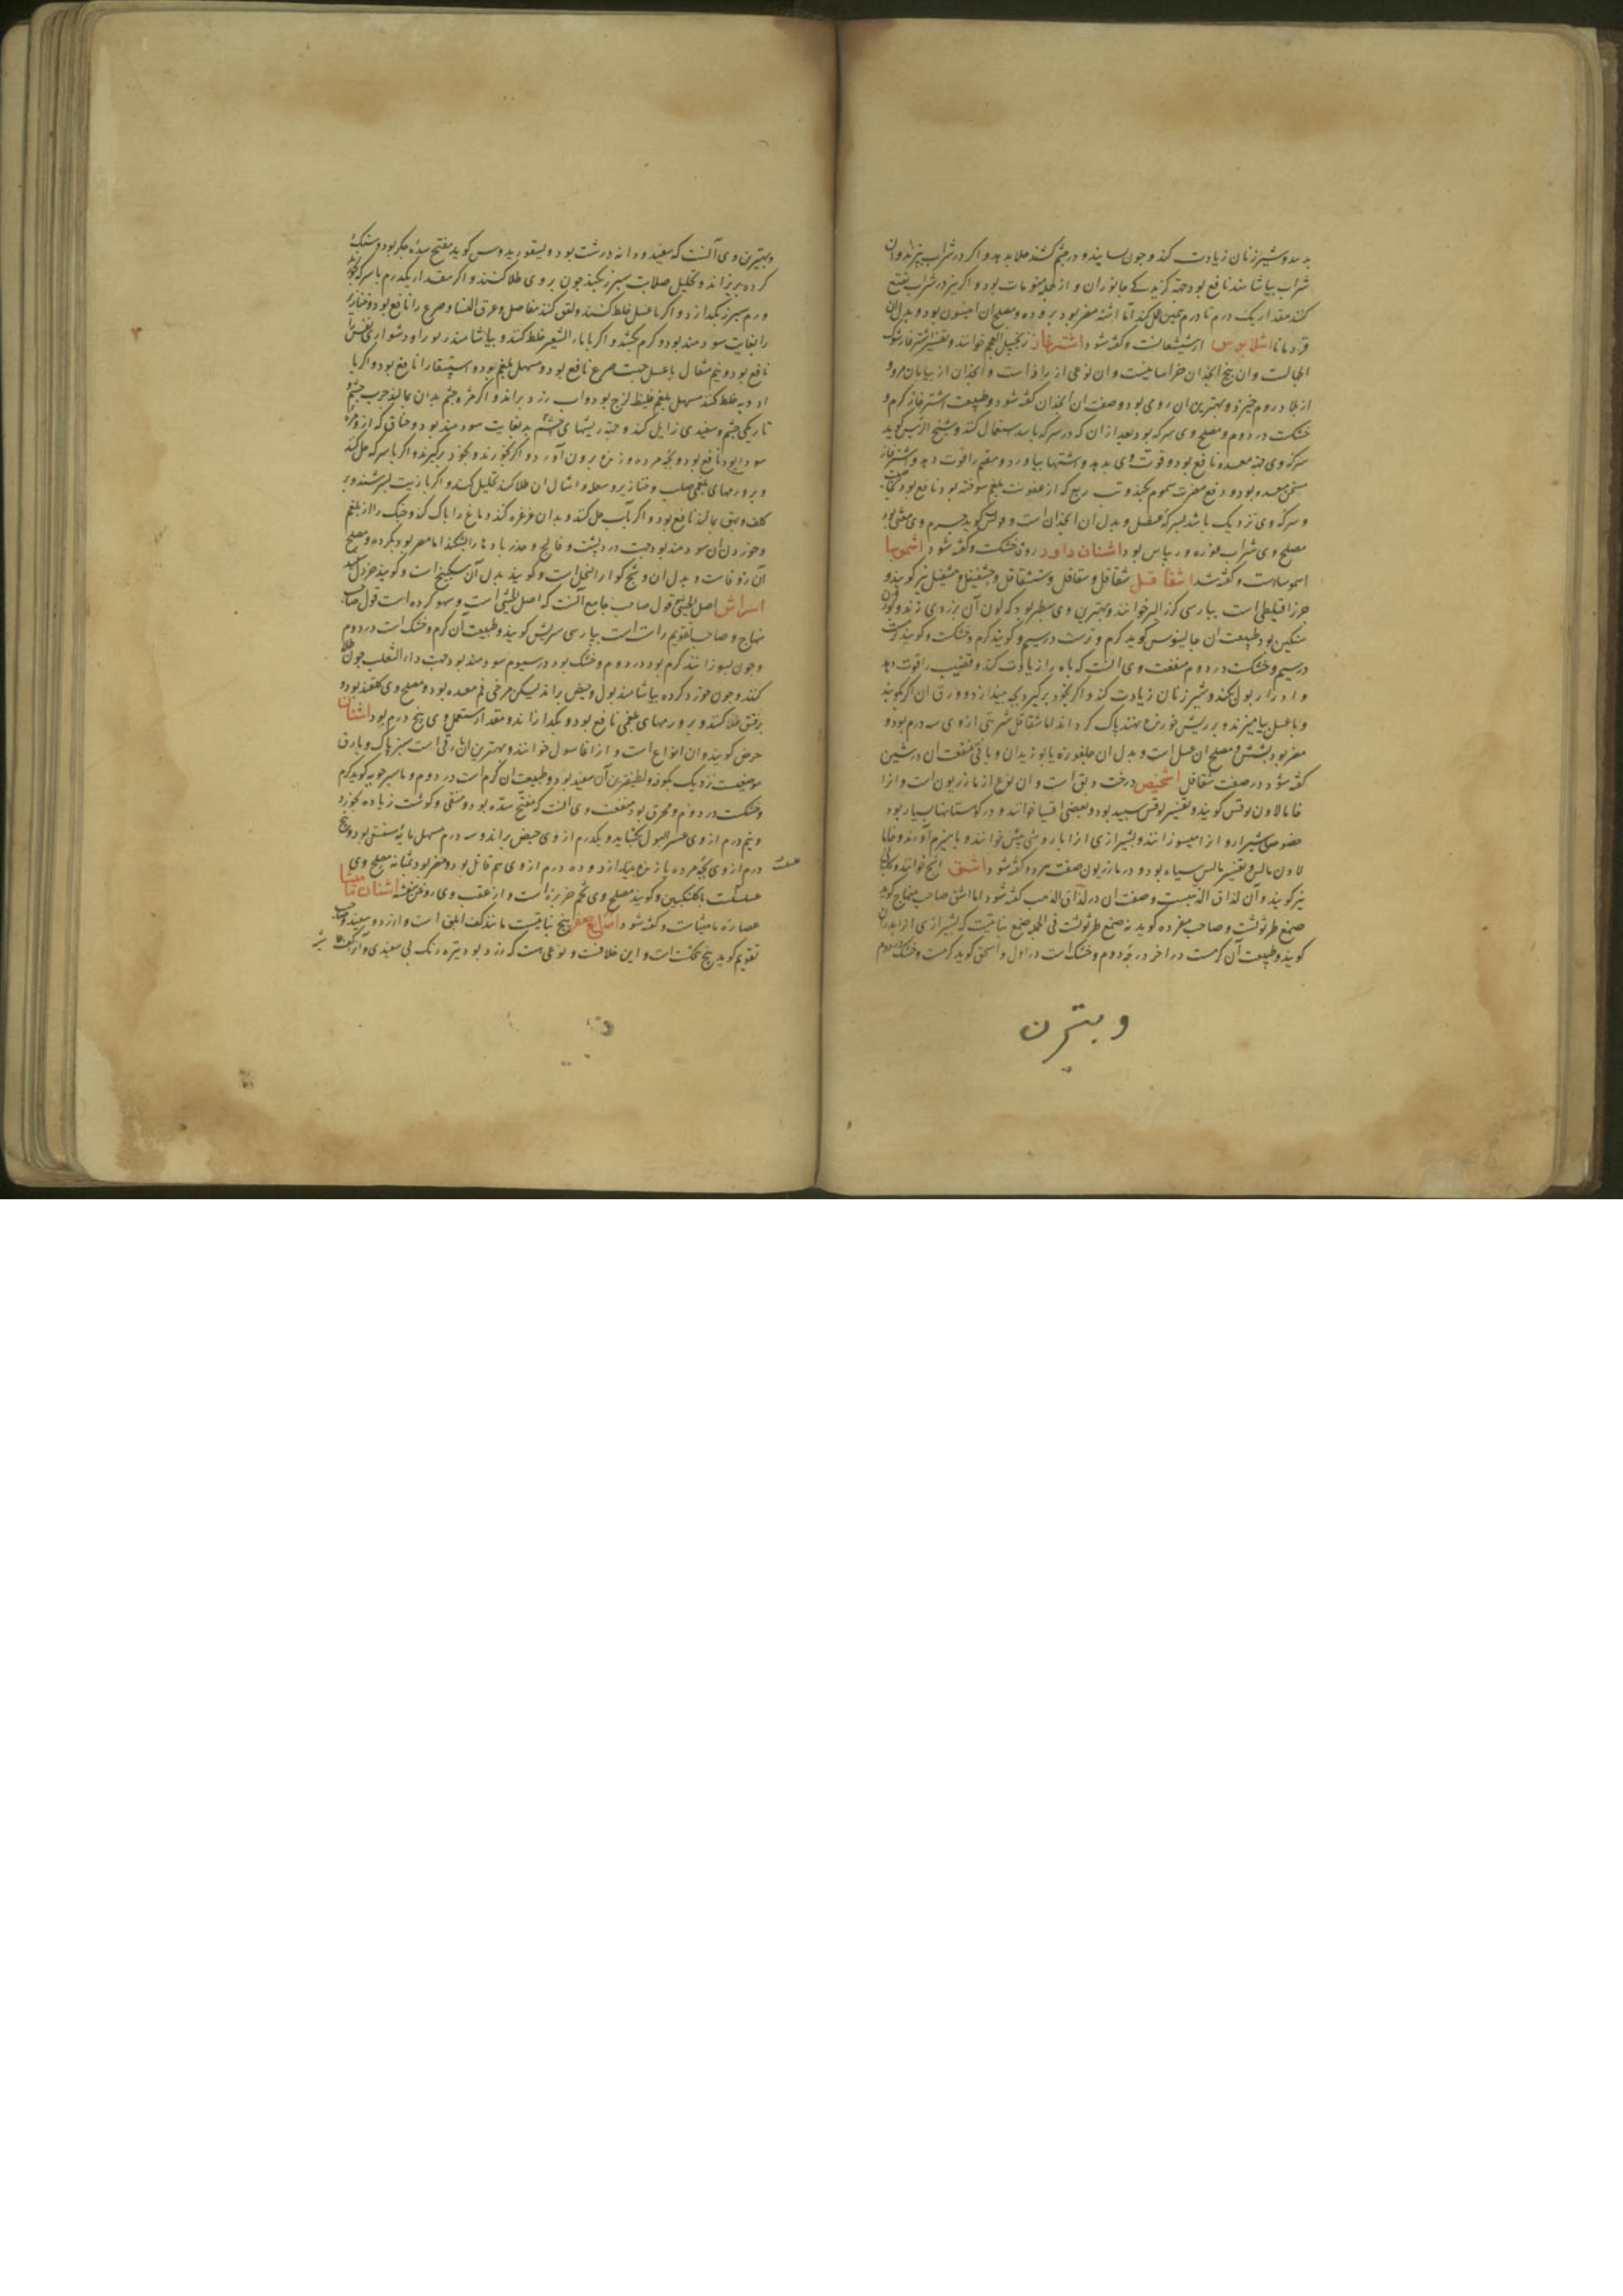 بدهد و شیر زنان زیادت کند و چون بسایند و در چشم کشند جلا بدهد و اگر در شراب بپزند و آن
شراب بیاشامند نافع بود جهة گزیدگی جانوران و از جمله منومات بود و اگر نیز در شراب نقیع
کنند مقدار یک درم تا درم همین عمل کند اما انثیه مضر بود ببرودة و مصلح ان انیسون بود و بدل ان
قردمانا اشلابوس دارشیشعانست و گفته شود اشترغاز زنجبیل العجم خوانند و تفسیر اشترغاز شوک
الجمالست وان بیخ انجدان خراسانیست وان نوعی از راذ است و انجدان از بیابان مرو و
از بلاد روم خیزد و بهترین ان روی بود و صفت ان انجدان گفته شود و طبیعت اشترغاز گرم و
خشکست در دوم و مصلح وی سرکه بود بعد از ان که در سرکه باشد استعمال کنند و شیخ الرئیس گوید
سرکه وی جهة معده نافع بود و قوت وی بدهد و اشتها بیاورد و هضم را قوت دهد و اشترغاز
مسخن معده بود و دفع مضرت سموم بکند و تب ربع که از عفونت بلغم سوخته بود نافع بود
و سرکه وی نزدیک باشد بسرکه عنصل و بدل ان انجدان است و یونس گوید جرم وی مغثی بود
مصلح وی شراب غوره و ریباس بود اشنان داود زوفا خشکست و گفته شود اشموسا
اسموساست و گفته شد اشقاقل شقاقل و سقاقل و ششقاقل و حشقیقل و حشیقل نیز گویند و
جزر اقلیطی است بپارسی گزر البر خوانند و بهترین وی سطبر بود که لون آن بزردی زند و بوزن
سنگین بود طبیعت ان جالینوس گوید گرم و تر است در سیم و گویند گرم و خشکست و گویند گرمست
در سیم و خشکست در دوم منفعت وی آنست که باه را زیادت کند و قضیب را قوت دهد
و ادرار بول بکند و شیر زنان زیادت کند و اگر بخود برگیرد بچه بیندازد و ورق ان اگر بکوبند
و با عسل بیامیزند و بر ریش خورنده نهند پاک گرداند اما شقاقل شربتی از وی سه درم بود و
مضر بود بشش و مصلح ان عسل است و بدل ان جلغوزه یا بوزیدان و باقی منفعت ان در شین
گفته شود در صفت شقاقل اشخیص درخت دبق است و ان نوع از مازریون است و انرا
خامالاون لوقس گویند و تفسیر لوقس سپید بود و بعضی اقسیا خوانند و در کوهستانها بسیار بود
خصوصا شیراز و از امیسوز انند و بشیرازی انرا بارومی چش خوانند و با هیزم آورند و خاما
لاون مالس و تفسیر مالس سیاه بود و در مازریون صفت هر دو گفته شود اشق اشج خوانند و کلبانی
نیز گویند و آن لذاق الذهبست و صفت ان در لذاق الذهب گفته شود اما اشق صاحب منهاج گوید
صمغ طرثوثست و صاحب مفرده گوید نه صمغ طرثوثست فی الجمله صمغ نباتیست که بشیرازی انرا بدران
گویند و طبیعت آن گرمست در اخر درجه دوم و خشک است در اول و اسحق گوید گرمست و خشک در دوم
و بهترین
وبهترین وی آنست که سفید و دانه درشت بود و دیسقوریدوس گوید مفتح سده جگر بود و سنگ
گرده بریزاند و تحلیل صلابت سپرز بکند چون بر وی طلا کنند و اگر مقدار یکدرم با سرکه بخورند
ورم سپرز بگدازد و اگر با عسل خلط کنند و لعق کنند مفاصل و عرق النسا و صرع را نافع بود و خنازیر
را بغایت سودمند بود و کرم بکشد و اگر با ماء الشعیر خلط کنند و بیاشامند ربو را و دشواری نفس را
نافع بود و نیم مثقال با عسل جهت صرع نافع بود و مسهل بلغم بود و استسقا را نافع بود و اگر با
ادویه خلط کنند مسهل بلغم غلیظ لزج بود و اب زرد براند و اگر مژه چشم بدان بمالند جرب چشم و
تاریکی چشم و سفیدی زایل کند و جهة ریشهای چشم بغایت سودمند بود و خناق که از مره
سودا بود نافع بود و بچه مرده و زنده برون آورد و اگر بخورند و بخود برگیرند و اگر با سرکه حل کنند
و بر ورمهای بلغمی صلب و خنازیر و سلعه و امثال ان طلا کنند تحلیل کند و اگر با زیت بسرشند و بر
کلف و بهق بمالند نافع بود و اگر بآب حل کنند و بدان غرغره کنند دماغ را پاک کند و حنک را از بلغم
و خوردن ان سودمند بود جهت درد پشت و فالج و خدر بادها را بشکند اما مضر بود بگرده و مصلح
آن زوفاست و بدل ان وشج کوار النحل است و گویند بدل آن سکبینج است و گویند خردل سپید
اسراش اصل الخنثی قول صاحب جامع آنست که اصل الخنثی است و سهو کرده است قول صاحب
منهاج و صاحب تقویم راست است بپارسی سریش گویند و طبیعت آن گرم و خشک است در دوم
و چون بسوزانند گرم بود در دوم و خشک بود در سیوم سودمند بود جهت داء الثعلب چون طلا
کنند و چون خورد کرده بیاشامند بول و حیض براند لیکن مرخی فم معده بود و مصلح وی گلقند بود و
بر فتق طلا کنند و بر ورمهای بلغمی نافع بود و بگدازاند و مقدار مستعمل وی پنج درم بود اشنان
حرض گویند و ان انواع است و انرا غاسول خوانند و بهترین ان بارقی است سبز پاک و بارق
موضعیست نزدیک بکوفه و لطیفترین آن سفید بود و طبیعت ان گرم است در دوم و ماسرجویه گوید گرم
و خشکست در دوم و محرق بود منفعت وی آنست که مفتح سده بود و منقی و گوشت زیاده بخورد
و نیم درم از وی عسر البول بگشاید و یکدرم از وی حیض براند و سه درم مسهل مائیه مستسقی بود و پنج
درم از وی بچه مرده یا زنده بیندازد و ده درم از وی سم قاتل بود و مضر بود بمثانه مصلح وی
عسلست با گلنگبین و گویند مصلح وی تخم خربزه است و از عقب وی روغن بنفشه اشنان قامشا
عصاره مامیثاست و گفته شود اصابع صفر بیخ نباتیست مانند کف ابلق است و از زرد و سفید و صاحب
تقویم گوید بیخ بنجنکشت است و این خلافست و نوعی هست که زرد بود تیره رنگ بی سفیدی و آن کف